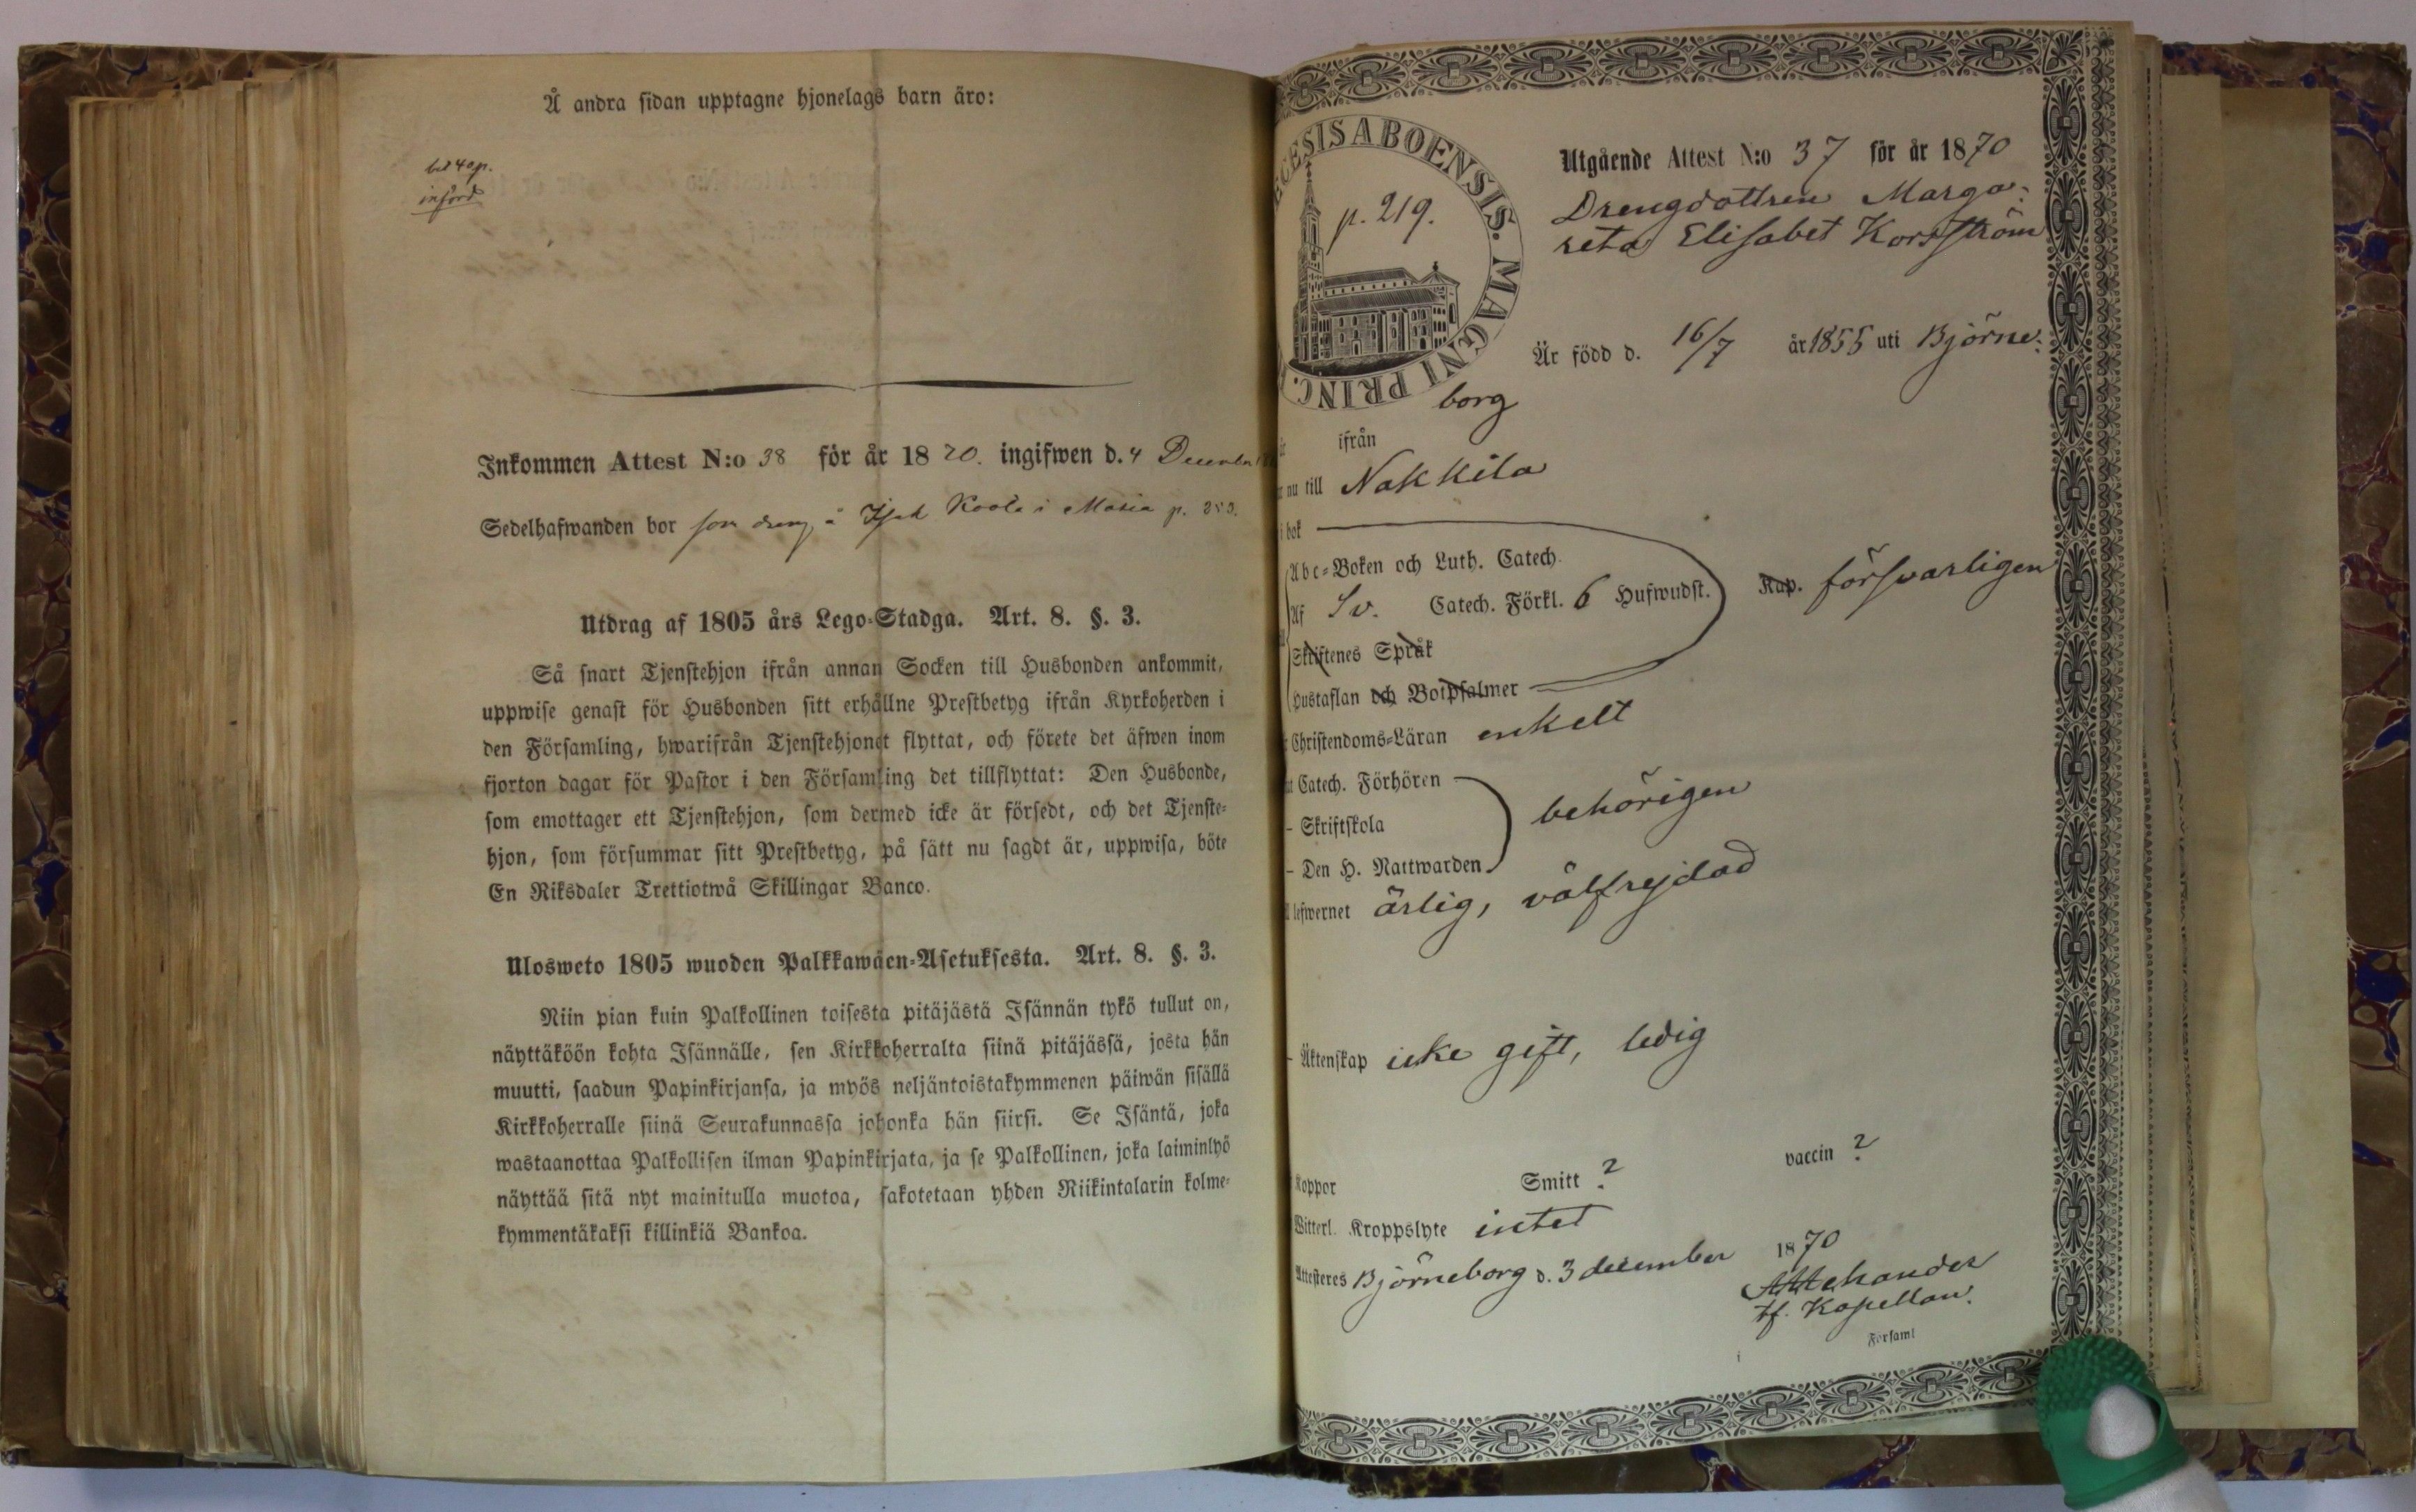 Å andra sidan upptagne hjonelags barn äro:
införd
Inkommen Attest N:o 38 för år 1870. ingifwen d. 4 December
Sedelhafwanden bor som dreng å i p.
Utdrag af 1805 års Lego-Stadga. Art. 8. §. 3.
Så snart Tjenstehjon ifrån annan Socken till Husbonden ankommit,
uppwise genast för Husbonden sitt erhållne Prestbetyg ifrån Kyrkoherden i
den Församling, hwarifrån Tjenstehjonet flyttat, och förete det äfwen inom
fjorton dagar för Pastor i den Församling det tillflyttat: Den Husbonde,
som emottager ett Tjenstehjon, som dermed icke är försedt, och det Tjenste-
hjon, som försummar sitt Prestbetyg, på sätt nu sagdt är, uppwisa, böte
En Riksdaler Trettiotwå Skillingar Banco.
Ulosweto 1805 wuoden Palkkawäen-Asetuksesta. Art. 8. §. 3.
Niin pian kuin Palkollinen toisesta pitäjästä Isännän tykö tullut on,
näyttäköön kohta Isännälle, sen Kirkkoherralta siinä pitäjässä, josta hän
muutti, saadun Papinkirjansa, ja myös neljäntoistakymmenen päiwän sisällä
Kirkkoherralle siinä Seurakunnassa johonka hän siirsi. Se Isäntä, joka
wastaanottaa Palkollisen ilman Papinkirjata, ja se Palkollinen, joka laiminlyö
näyttää sitä nyt mainitulla muotoa, sakotetaan yhden Riikintalarin kolme-
kymmentäkaksi killinkiä Bankoa.
ECESIS ABOENSIS. MAGNI PRINC.
p. 219.
Utgående Attest N:o 37 för år 1870
Drengdottren Marga-
reta Elisabet Korsström
Är född d. 16/7 år 1855 uti Björne-
borg
ifrån
nu till Nakkila
i bok
Abc-Boken och Luth. Catech.
Af Sv. Catech. Förkl. 6 Hufwudst. Kap. försvarligen
Skriftenes Språk
Hustaflan och Botpsalmer
Christendoms-Läran enkelt
Catech. Förhören
- Skriftskola behörigen
- Den H. Nattwarden
lefwernet ärlig, välfrejdad
- Äktenskap icke gift, ledig
Koppor Smitt ? vaccin ?
Witterl. Kroppslyte intet
Attesteres Björneborg d. 3 december 1870
tf. Kapellan.
i Församl